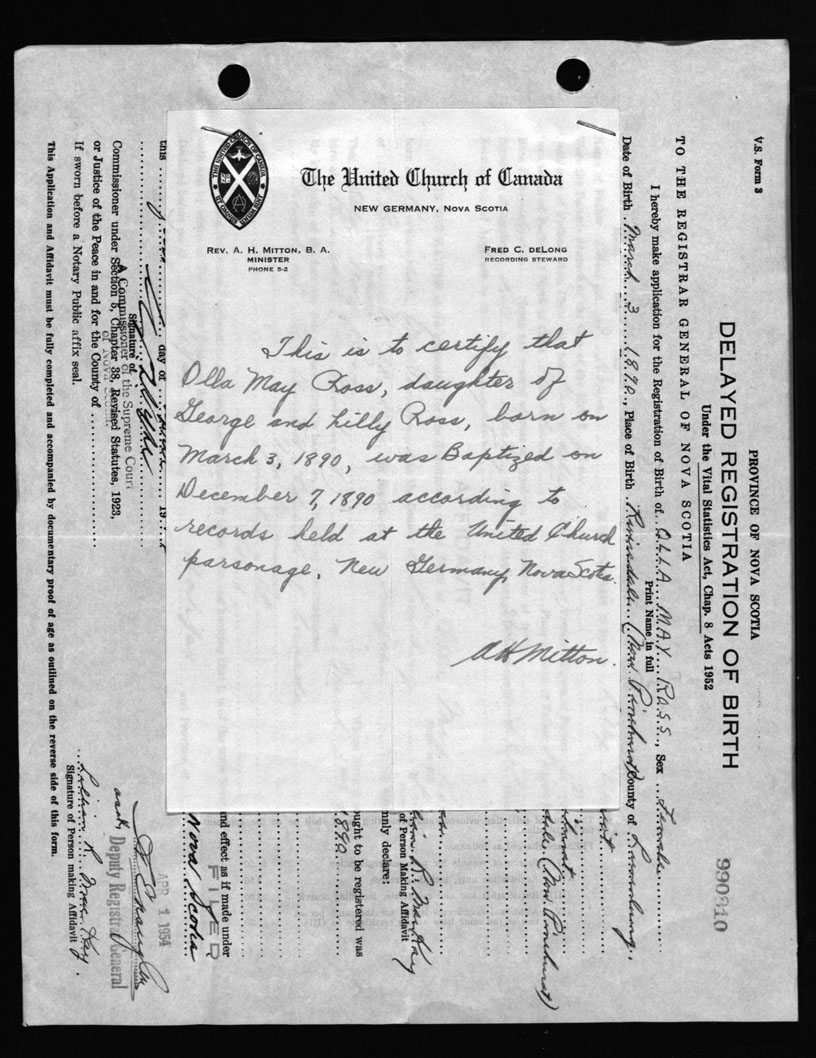 The United Church of Canada
NEW GERMANY, NOVA SCOTIA
REV. A. H. MITTON, B. A.
MINISTER
PHONE 5-2
FRED C. DELONG
RECORDING STEWARD
This is to certify that
Olla May Ross, daughter of
George and Lilly Ross, born on
March 3, 1890, was Baptized on
December 7, 1890 according to
records held at the United Church
parsonage, New Germany, Nova Scotia.
A H Mitton.
V.S. Form 3
PROVINCE OF NOVA SCOTIA
DELAYED REGISTRATION OF BIRTH
Under the Vital Statistics Act, Chap. 8 Acts 1952
990810
TO THE REGISTRAR GENERAL OF NOVA SCOTIA
I hereby make application for the Registration of Birth of OLLA MAY ROSS, Sex Female
Print Name in full
Date of Birth March 3 1890, Place of Birth (Now Pinehurst) County of Lunenburg.
(Now Pinehurst)
R. MacKay
of Person Making Affidavit
nly declare:
ought to be registered was
1890
and effect as if made under
FILED
Nova Scotia
this day of 19
Signature of
A Commissioner of the Supreme Court
of Nova Scotia
Commissioner under Section 5, Chapter 38, Revised Statutes, 1923,
or Justice of the Peace in and for the County of
If sworn before a Notary Public affix seal.
APR 1 1954
Deputy Registrar General
Lillian R. MacKay.
Signature of Person making Affidavit
This Application and Affidavit must be fully completed and accompanied by documentary proof of age as outlined on the reverse side of this form.